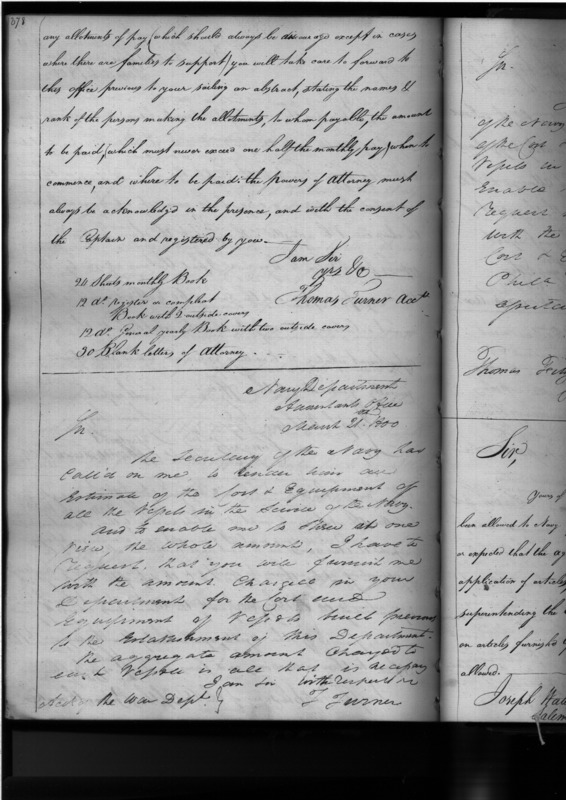 278
any allotments of pay (which should always be discouraged except in cases
where there are families to support) you will take care to forward to
this office previous to your sailing an abstract, stating the names &
rank of the persons making the allotments, to whom payable, the amount
to be paid (which must never exceed one half the monthly pay) when to
commence, and where to be paid: the powers of Attorney must
always be acknowledged in the presence, and with the consent of
the Captain and registered by you.
I am Sir
yrs &c
Thomas Turner Acct
24 Sheets monthly Book
12 do. Register or compleat
Book with 2 outside covers
12 do. General yearly Book with two outside covers
30 Blank letters of Attorney
Navy Department
Accountants Office
March 21st 1800
Sir.
The Secretary of the Navy has
call'd on me to render him an
Estimate of the Cost & Equipment of
all the Vessels in the Service of the Navy.
and to enable me to Shew at one
View, the whole amount, I have to
request that you will furnish me
with the amount Charged in your
Department for the Cost and
Equipment of Vessels built previous
to the Establishment of this Department.
The aggregate amount Charged to
each Vessel is all that is necessary
I am Sir with respect
T Turner
the War Dept.
Sir.
of the Navy
of the Cost
Vessels in
Enable
request
with the
Cost & E
Phila
Thomas Fitz
Sir,
Yours of
been allowed to
or expected that the ag
application of articles
superintending the
on articles furnished
allowed.
Joseph
Salem